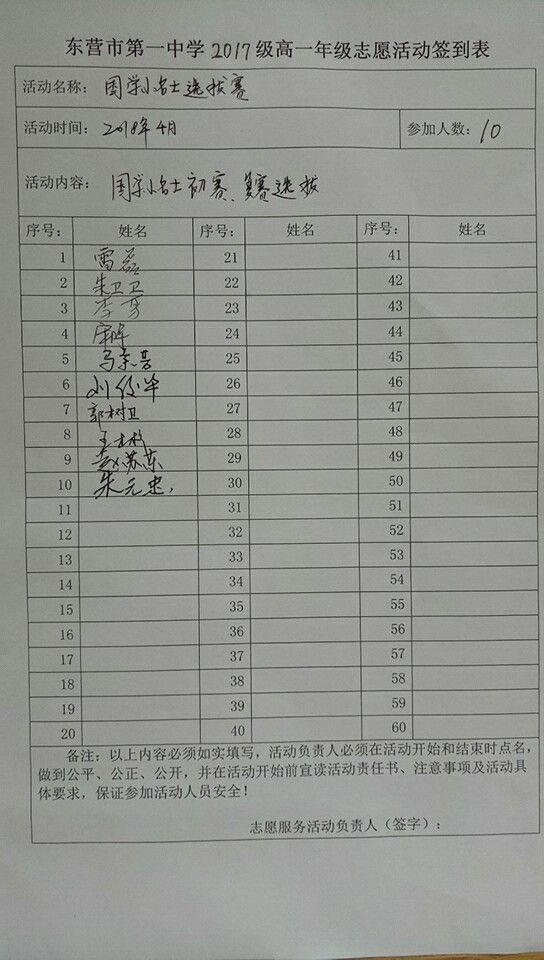 东营市第一中学2017级高一年级志愿活动签到表
活动名称: 国学小名士选拔赛
活动时间: 2018年4月 参加人数: 10
活动内容: 国学小名士初赛、复赛选拔
序号: 姓名 序号: 姓名 序号: 姓名
1 雷磊 21 41
2 朱卫卫 22 42
3 李勇 23 43
4 24 44
5 马荣芸 25 45
6 刘俊华 26 46
7 郭树卫 27 47
8 王彬彬 28 48
9 赵苏东 29 49
10 朱元忠, 30 50
11 31 51
12 32 52
13 33 53
14 34 54
15 35 55
16 36 56
17 37 57
18 38 58
19 39 59
20 40 60
备注: 以上内容必须如实填写，活动负责人必须在活动开始和结束时点名，
做到公平、公正、公开，并在活动开始前宣读活动责任书、注意事项及活动具
体要求，保证参加活动人员安全！
志愿服务活动负责人（签字）: